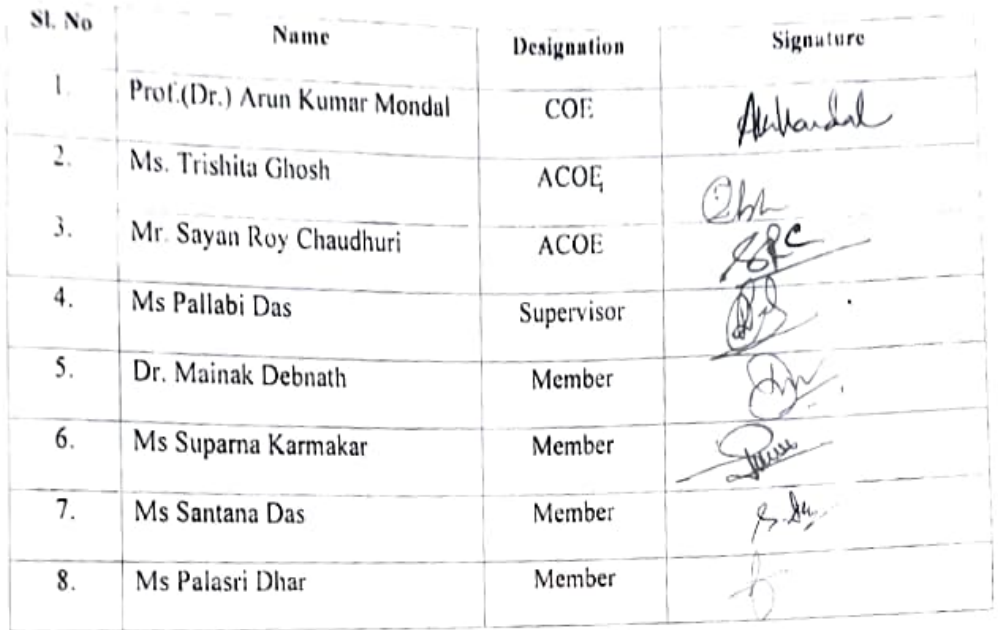 Sl. No Name Designation Signature
1. Prof.(Dr.) Arun Kumar Mondal COE AkMondal
2. Ms. Trishita Ghosh ACOE
3. Mr. Sayan Roy Chaudhuri ACOE SRC
4. Ms Pallabi Das Supervisor
5. Dr. Mainak Debnath Member
6. Ms Suparna Karmakar Member
7. Ms Santana Das Member S. Das
8. Ms Palasri Dhar Member